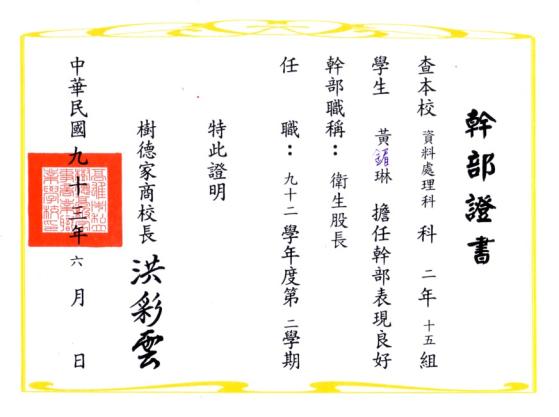 幹部證書
查本校 資料處理科 科 二年 十五 組
學生 黃鈺琳 擔任幹部表現良好
幹部職稱：衛生股長
任 職：九十二學年度第二學期
特此證明
樹德家商校長 洪彩雲
中華民國九十三年六月 日